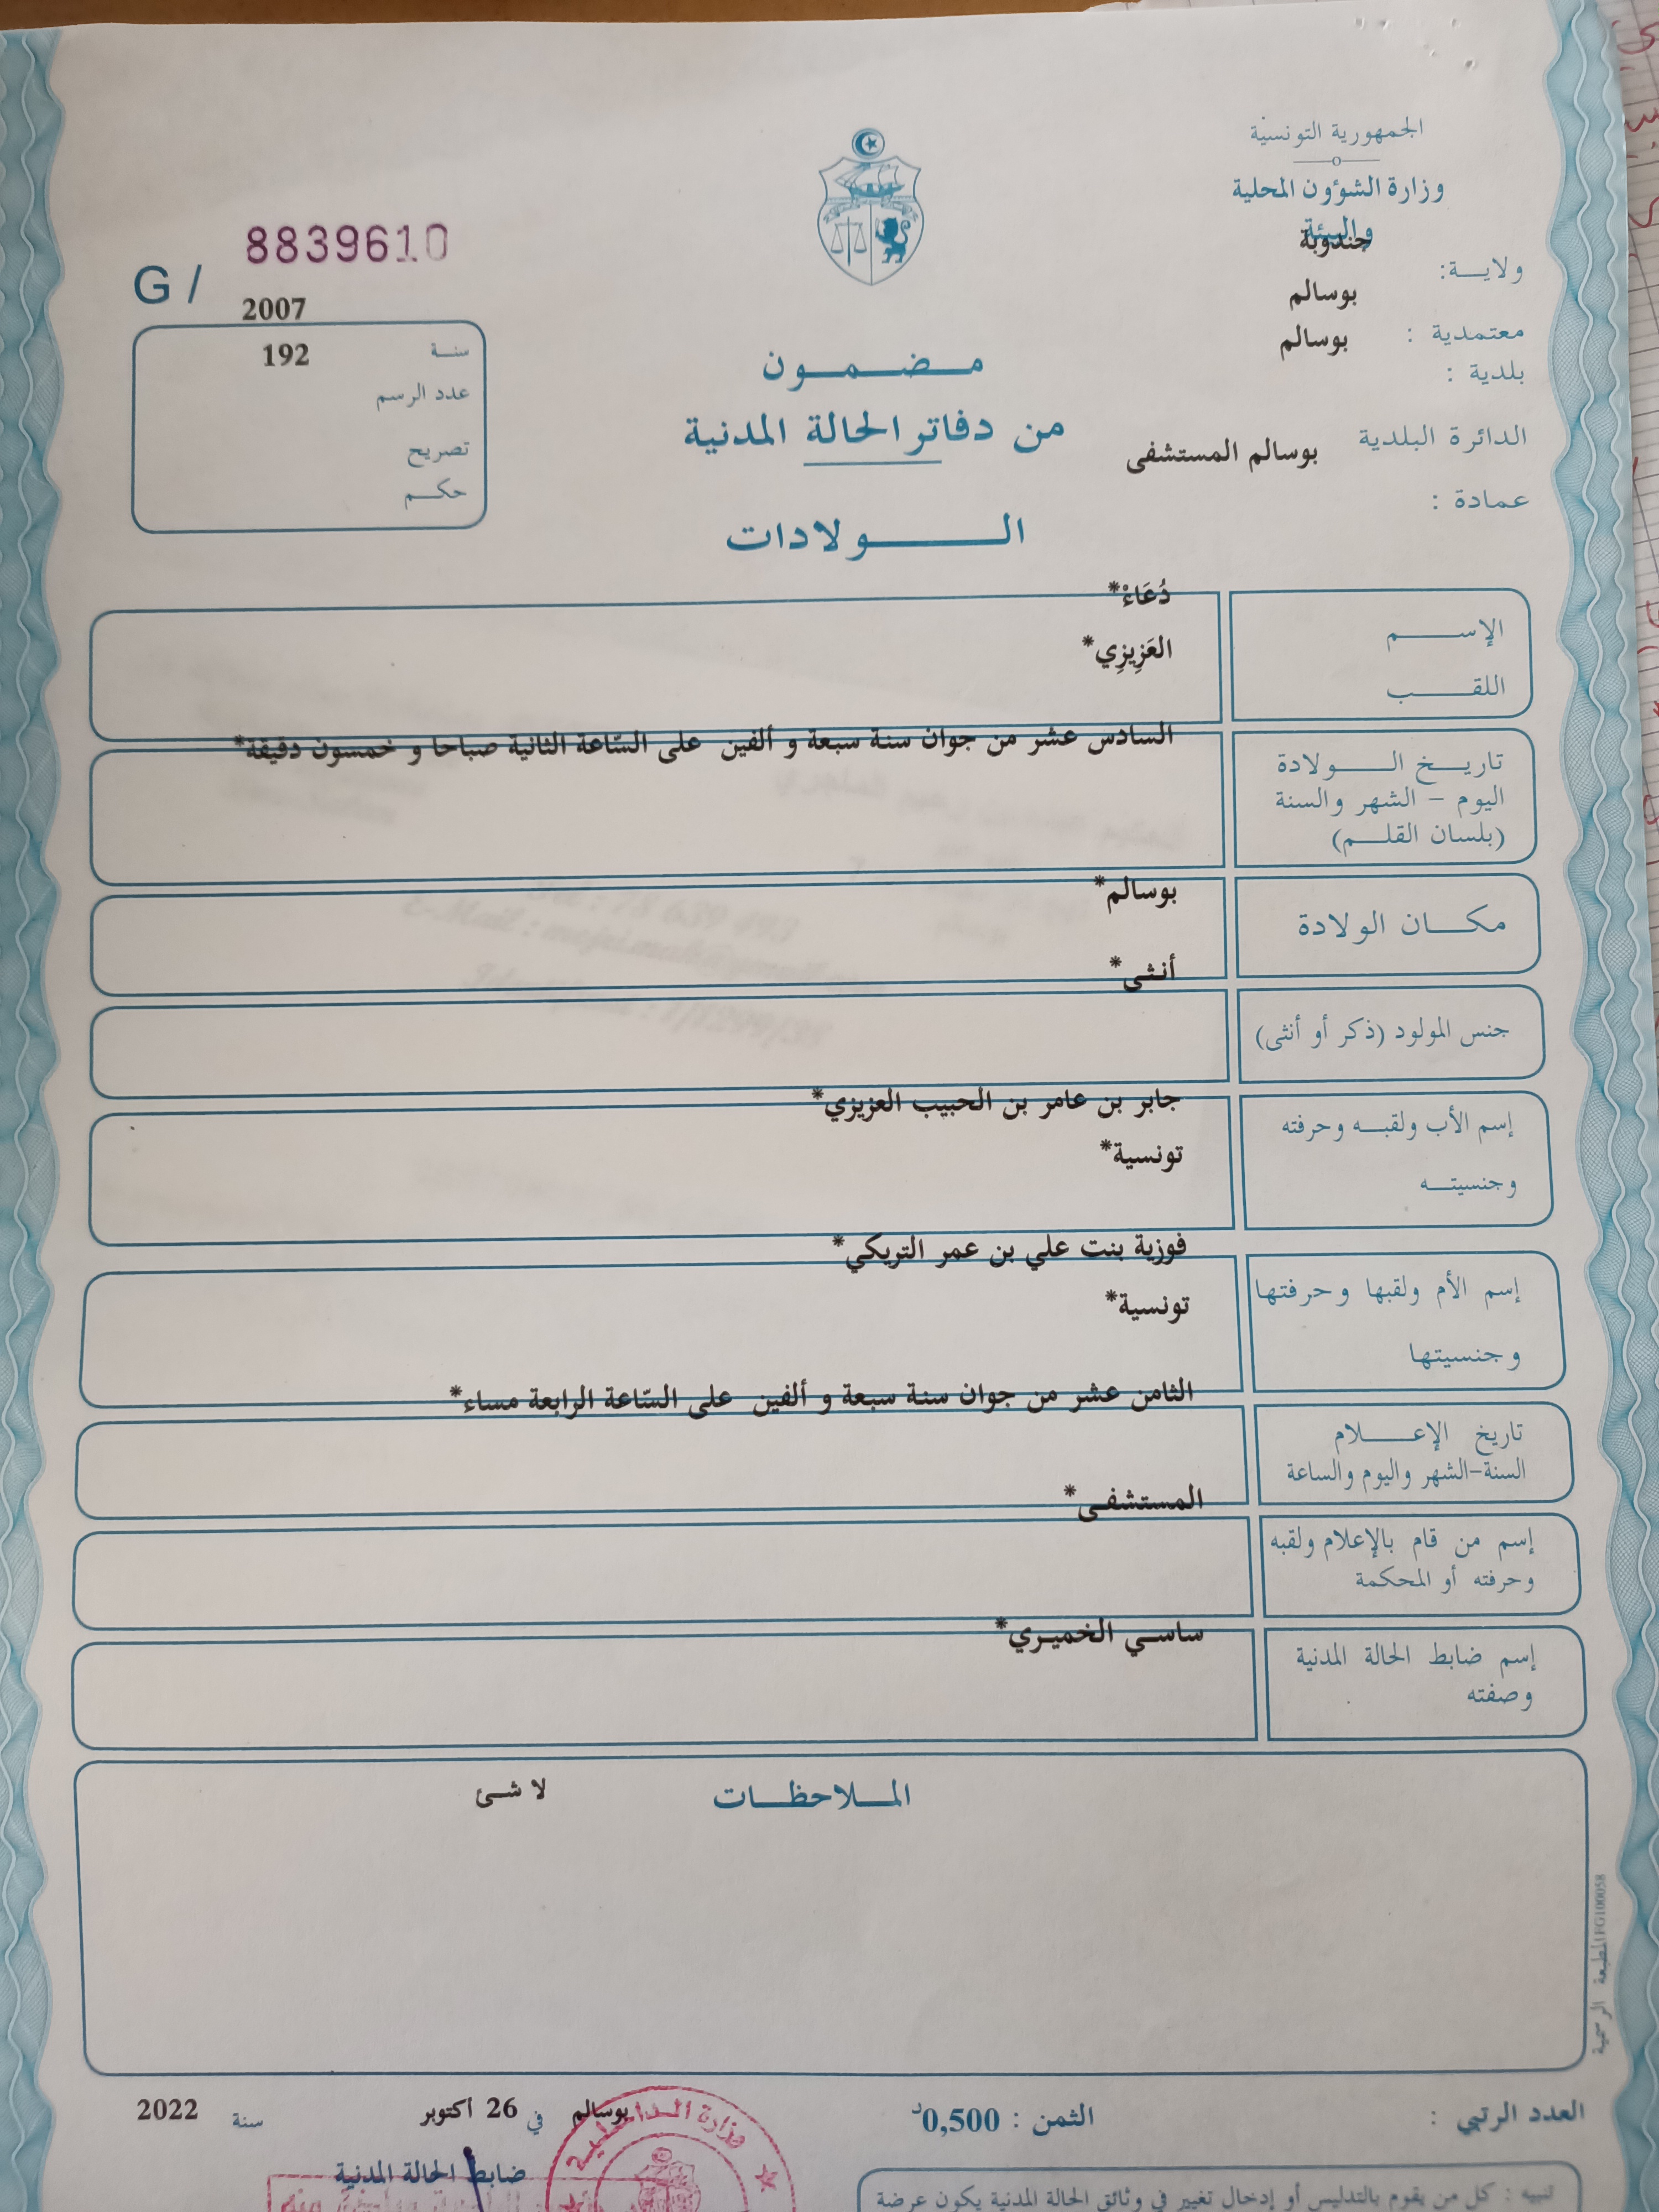 الجمهورية التونسية
وزارة الشؤون المحلية
والبيئة
ولاية: جندوبة
معتمدية : بوسالم
بلدية : بوسالم
الدائرة البلدية بوسالم المستشفى
عمادة :
8839610
G /
سنة 2007
عدد الرسم 192
تصريح
حكم
مضمون
من دفاتر الحالة المدنية
الولادات
الإسم دُعَاءْ*
اللقب العَزِيزِي*
تاريخ الولادة السادس عشر من جوان سنة سبعة و ألفين على السّاعة الثانية صباحا و خمسون دقيقة*
اليوم - الشهر والسنة
(بلسان القلم)
مكان الولادة بوسالم*
جنس المولود (ذكر أو أنثى) أنثى*
إسم الأب ولقبه وحرفته جابر بن عامر بن الحبيب العزيزي*
وجنسيته تونسية*
إسم الأم ولقبها وحرفتها فوزية بنت علي بن عمر التريكي*
وجنسيتها تونسية*
تاريخ الإعلام الثامن عشر من جوان سنة سبعة و ألفين على السّاعة الرابعة مساء*
السنة-الشهر واليوم والساعة
إسم من قام بالإعلام ولقبه المستشفى*
وحرفته أو المحكمة
إسم ضابط الحالة المدنية ساسي الخميري*
وصفته
الملاحظات لا شئ
المطبعة الرسمية FG100058
العدد الرتبي :
الثمن : 0,500د
بوسالم في 26 أكتوبر سنة 2022
ضابط الحالة المدنية
وزارة الداخلية
تنبيه : كل من يقوم بالتدليس أو إدخال تغيير في وثائق الحالة المدنية يكون عرضة